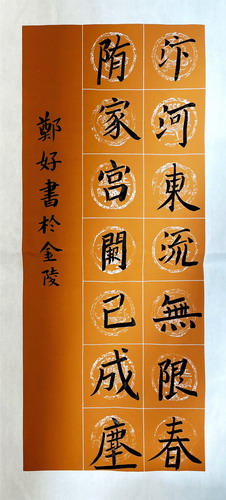 汴河東流無限春
隋家宮闕已成塵
鄭好書於金陵